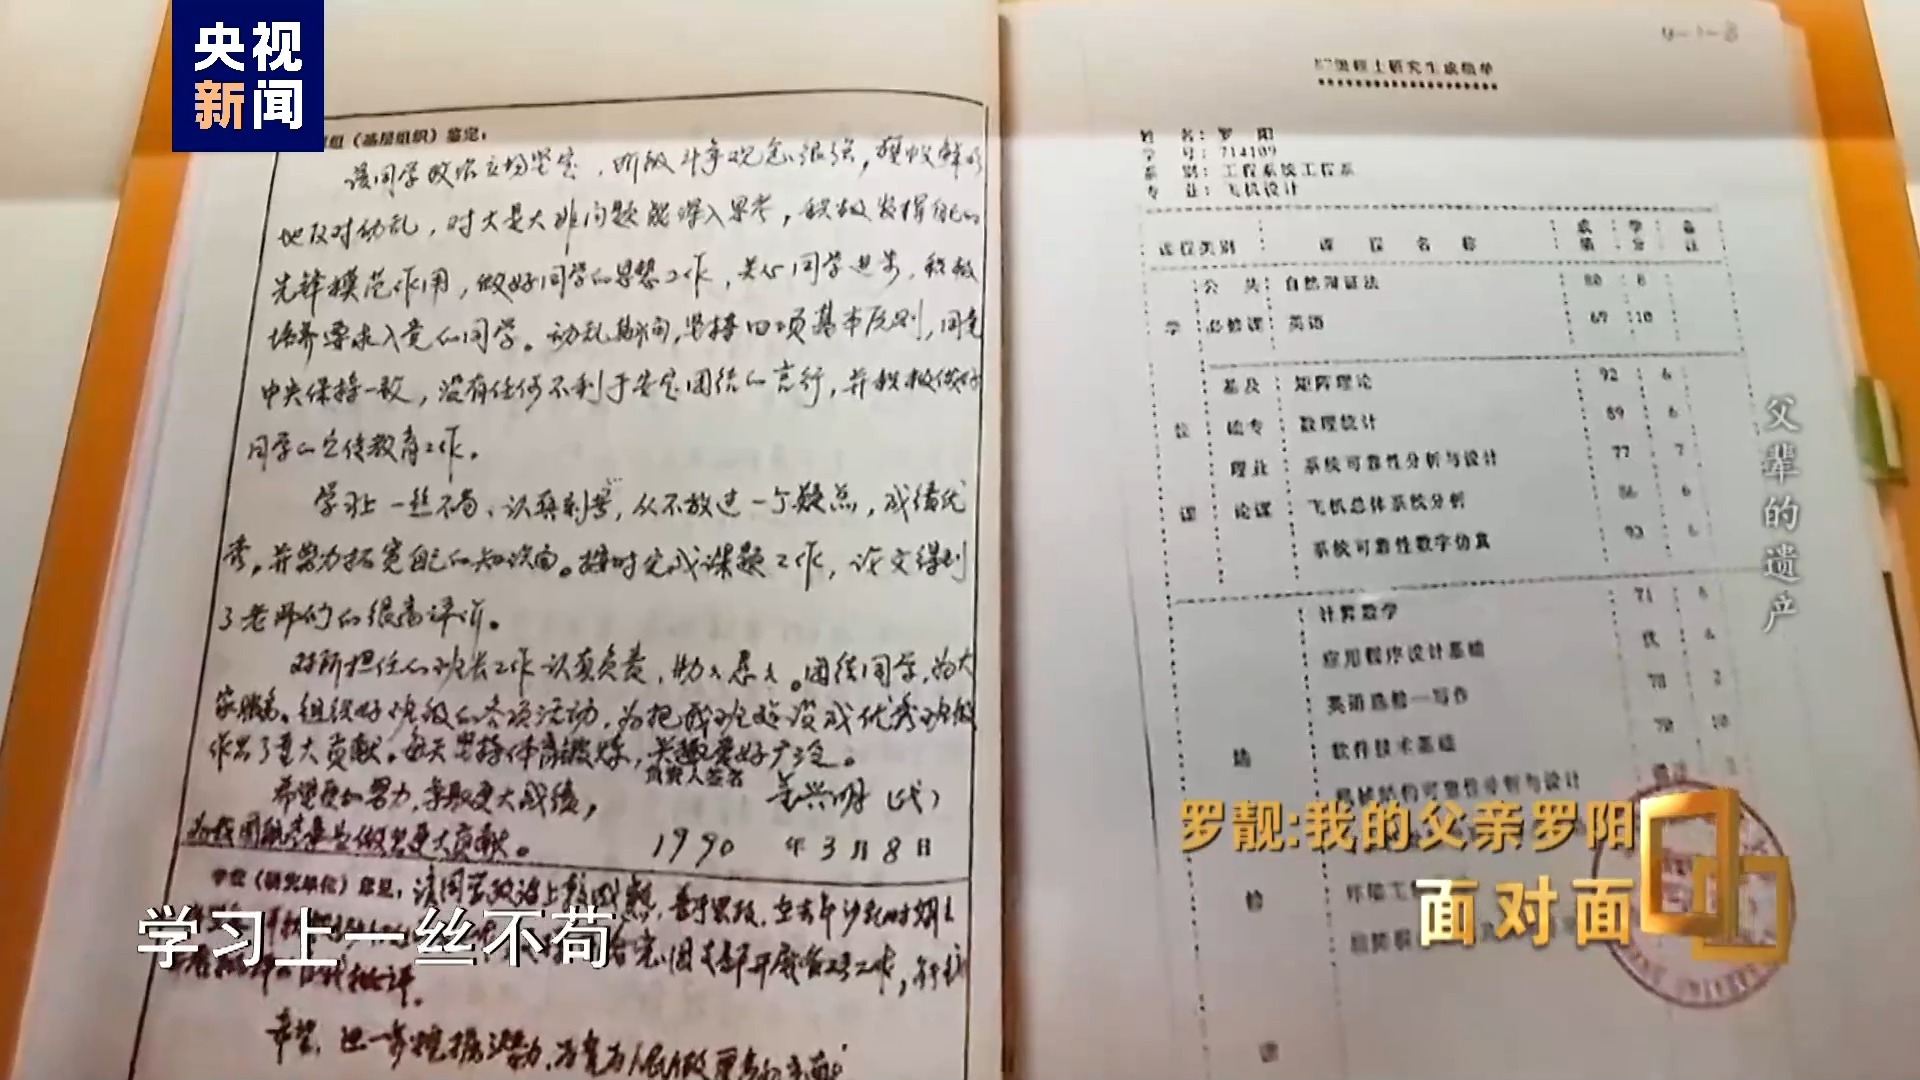 央视
新闻
组（基层组织）鉴定：
该同学政治立场坚定，阶级斗争观念很强，旗帜鲜明
地反对动乱，对大是大非问题能深入思考，积极发挥自己的
先锋模范作用，做好同学的思想工作，关心同学进步，积极
培养要求入党的同学。动乱期间，坚持四项基本原则，同党
中央保持一致，没有任何不利于安定团结的言行，并积极做好
同学的宣传教育工作。
学习上一丝不苟、认真刻苦，从不放过一个疑点，成绩优
秀，并努力拓宽自己的知识面。按时完成课题工作，论文得到
了老师们的很高评价。
对所担任的班长工作认真负责，助人为乐。团结同学，为大
家服务。组织好班级的各项活动，为把我班建设成优秀班级
作出了重大贡献。每天坚持体育锻炼，兴趣爱好广泛。
希望更加努力，争取更大成绩，
负责人签名
姜兴明（代）
为我国航空事业做出更大贡献。
1990 年 3 月 8 日
学位（研究单位）意见：该同学政治上较成熟，善于思考，
工作，
自我批评。
希望，进一步挖掘潜力，为党为人民做更多的贡献
学习上一丝不苟
4-1-8
87级硕士研究生成绩单
姓 名：罗 阳
学 号：714109
系 别：工程系统工程系
专 业：飞机设计
课程类别 课 程 名 称 成绩 学分 备注
公 共 自然辩证法 80 8
学 必修课 英语 69 10
基及 矩阵理论 92 6
位 础专 数理统计 89 6
理业 系统可靠性分析与设计 77 7
课 论课 飞机总体系统分析 86 6
系统可靠性数字仿真 93 6
计算数学 71 6
应用程序设计基础 优 4
英语选修—写作 78 2
软件技术基础 70 10
选 机械结构可靠性分析与设计
修
课
父辈的遗产
罗靓:我的父亲罗阳
面对面